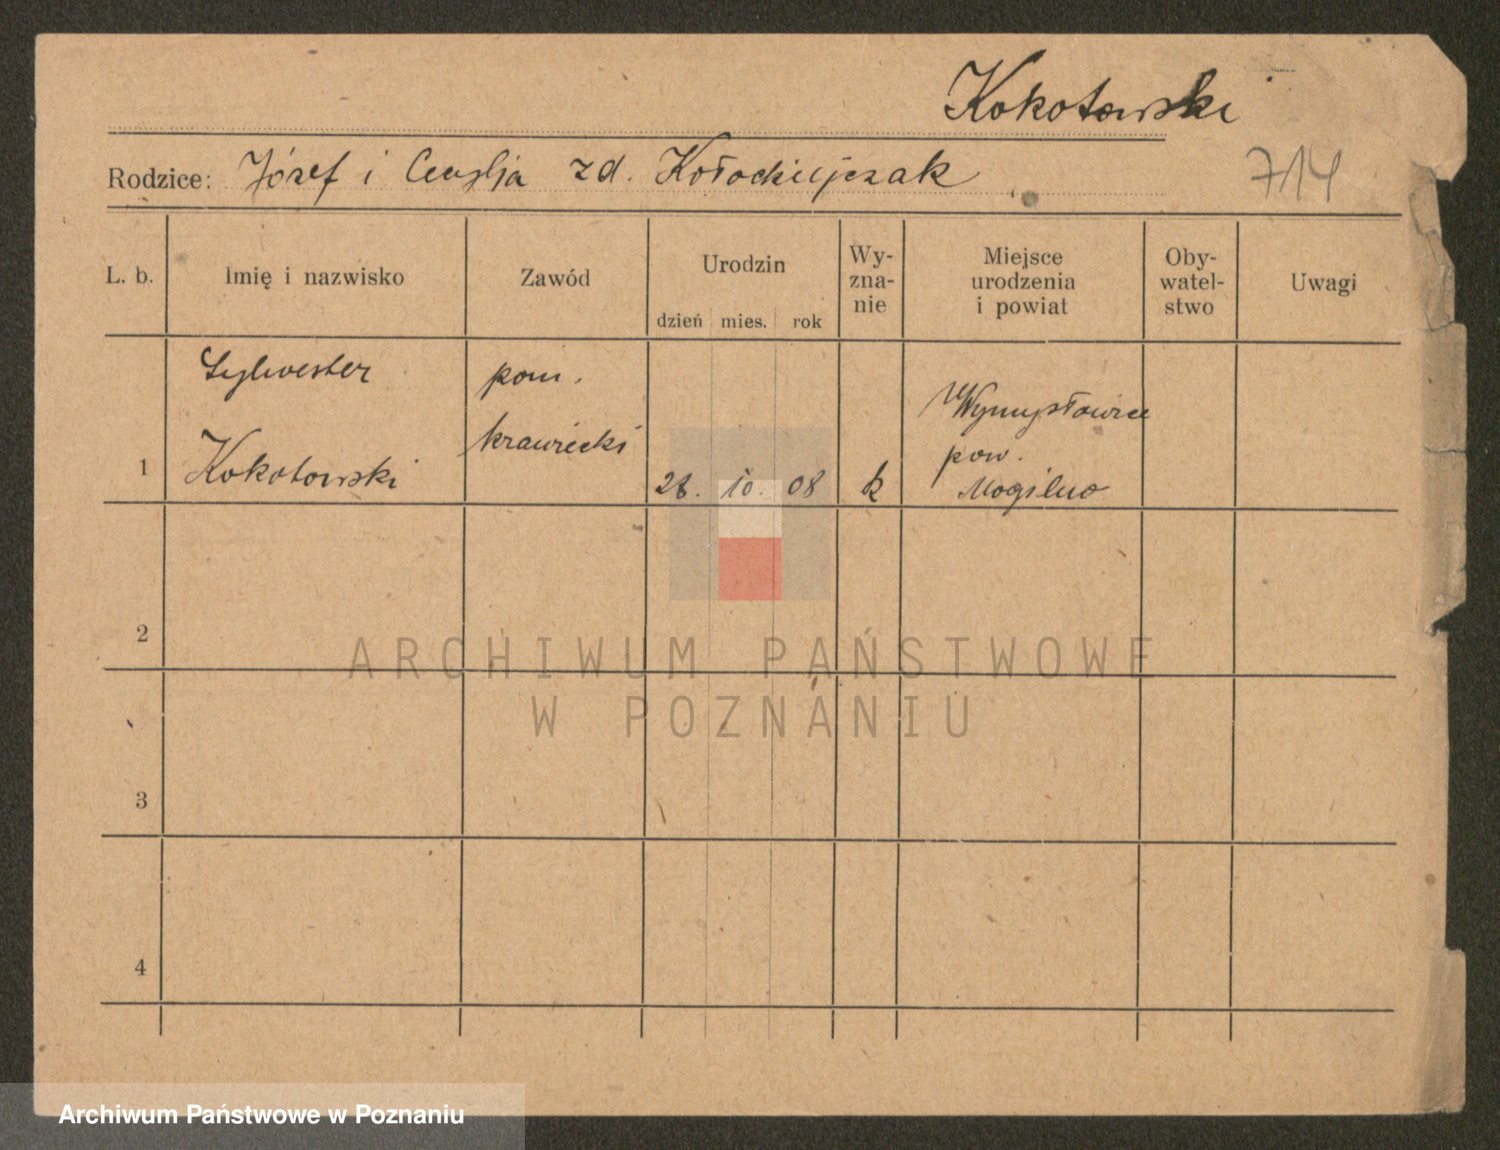 Kokotowski
Rodzice: Józef i Cecylja zd. Kołodziejczak
714
L. b. Imię i nazwisko Zawód Urodzin dzień mies. rok Wy-zna-nie Miejsce urodzenia i powiat Oby-watel-stwo Uwagi
Sylwester pom.
Kokotowski krawiecki
1 28. 10. 08 k
Wymysłowice
pow.
Mogilno
2
ARCHIWUM PAŃSTWOWE
W POZNANIU
3
4
Archiwum Państwowe w Poznaniu